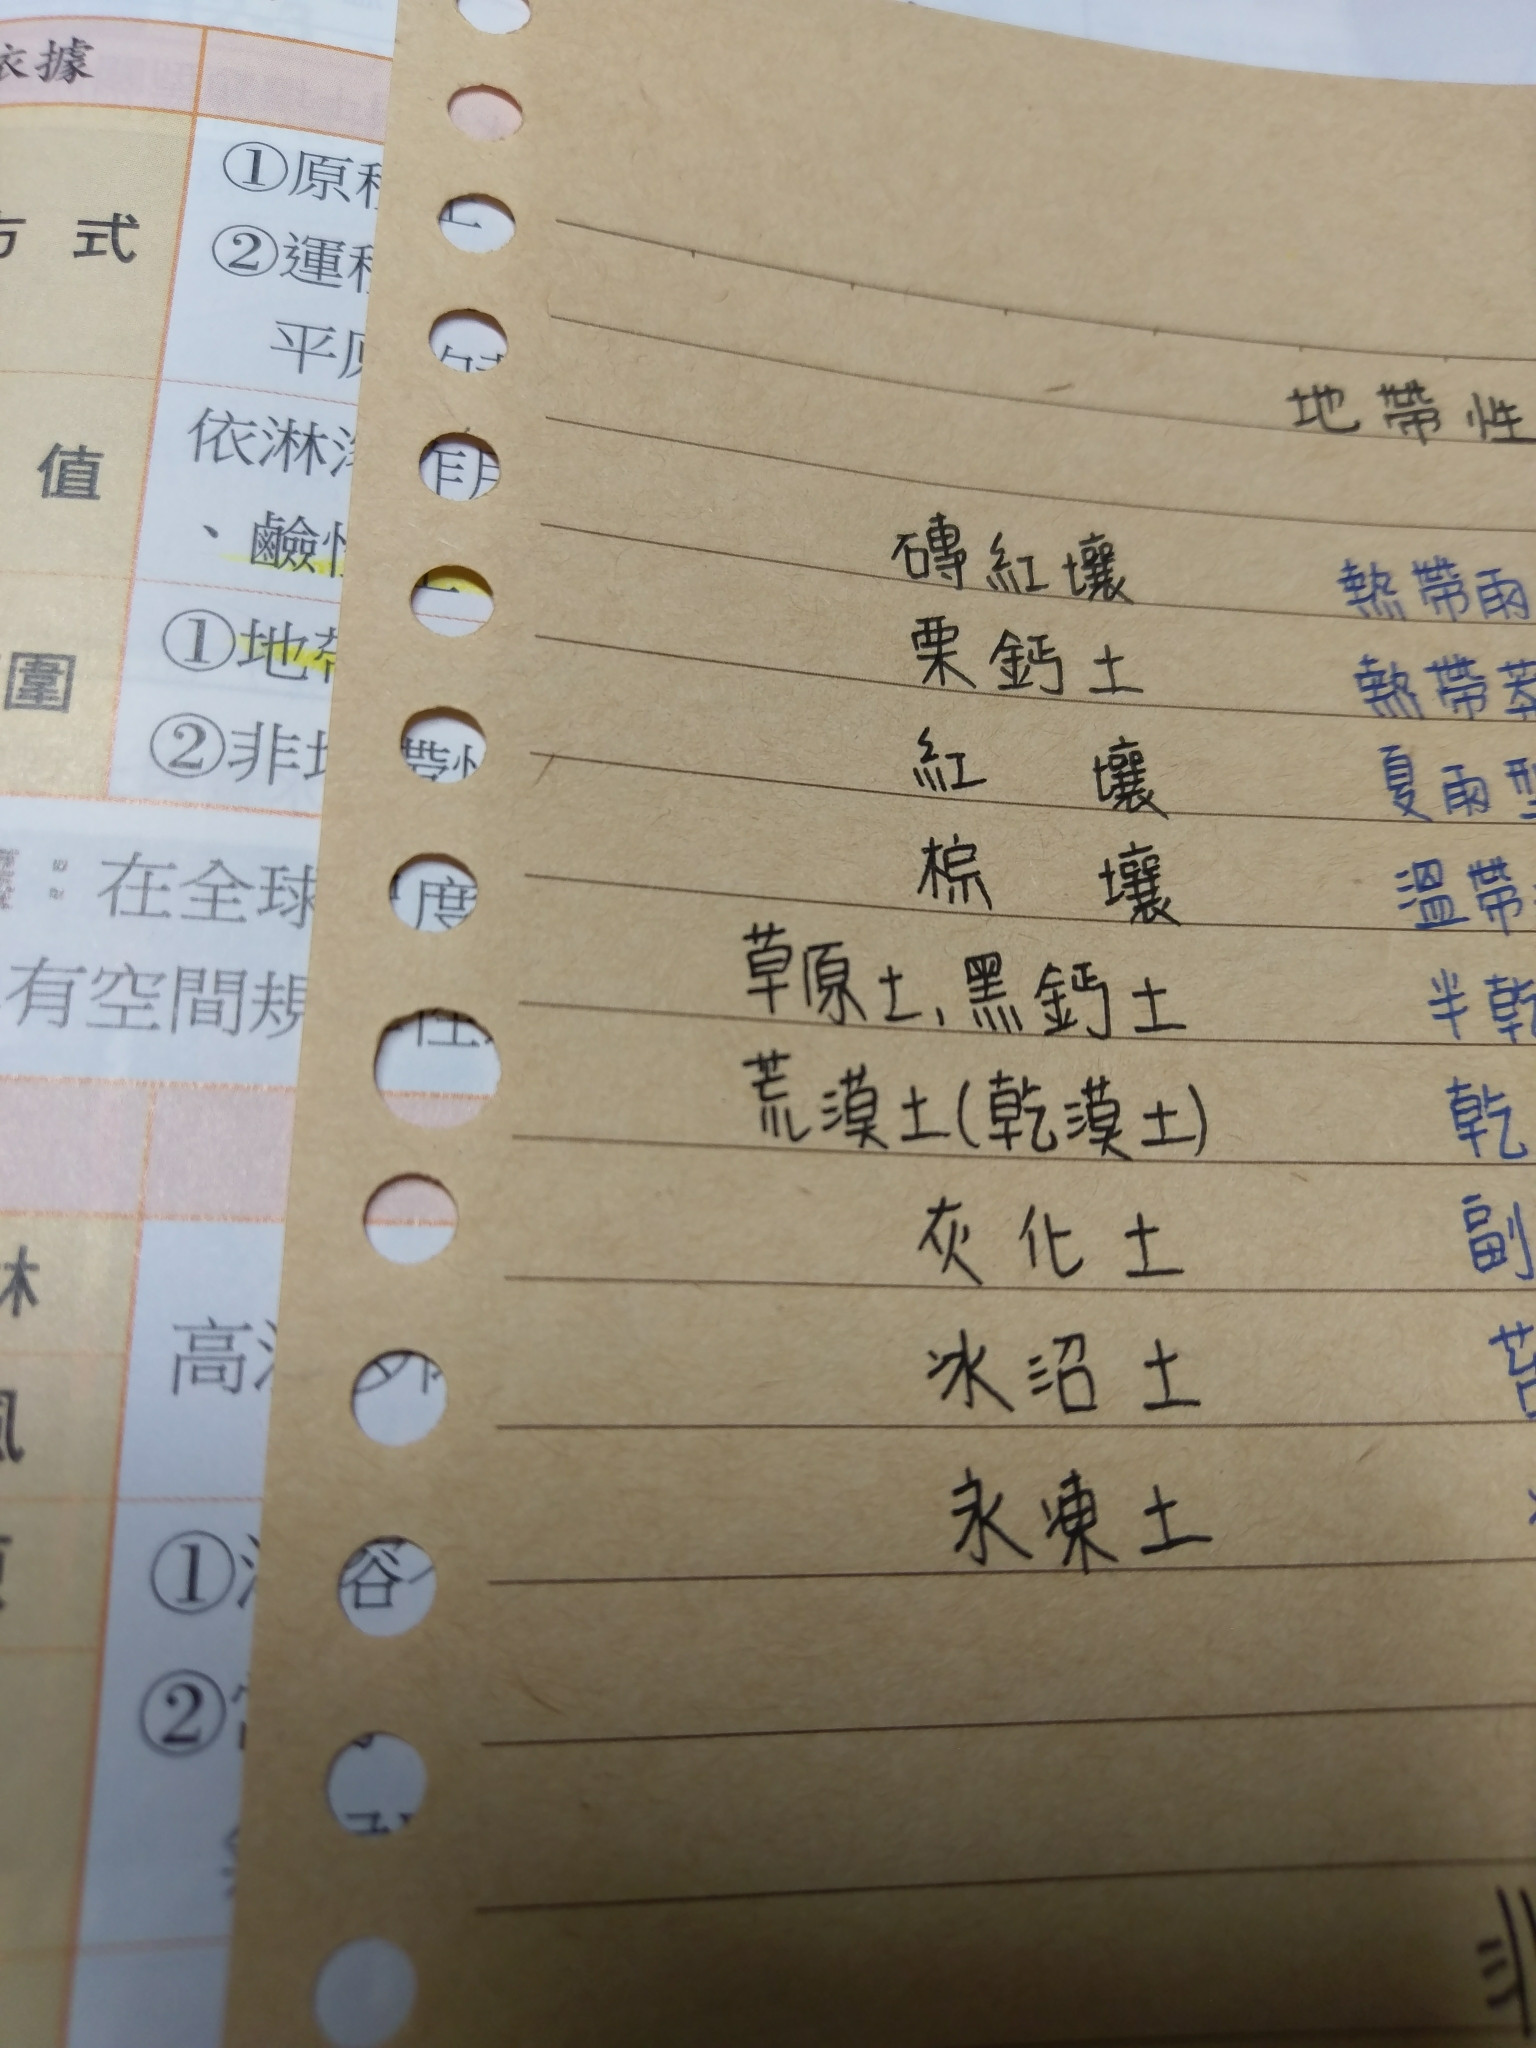 依據
①原
方 式
②運
平
值
依淋
、鹼性
圍
①地帶
②非地
帶性
：在全球
度
有空間規
性
林
高
風
①
谷
②
地帶性
磚紅壤 熱帶雨
栗鈣土 熱帶莽
紅 壤 夏雨型
棕 壤 溫帶
草原土,黑鈣土 半乾
荒漠土(乾漠土) 乾
灰化土 副
冰沼土 苔
永凍土